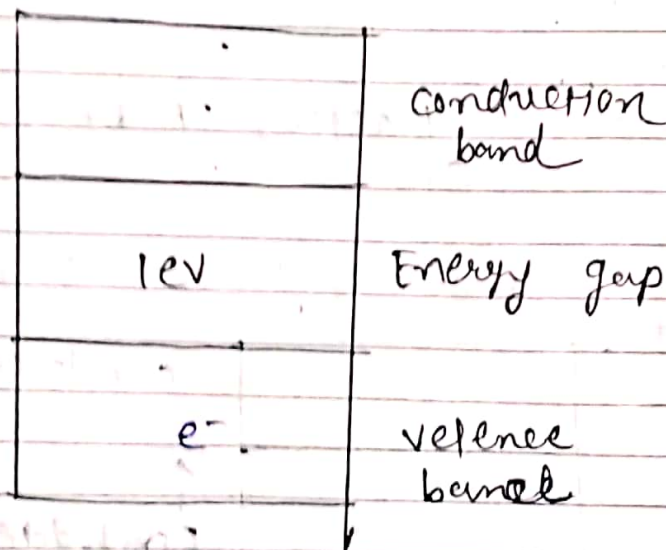 conduction
band
1ev Energy gap
e- velence
band